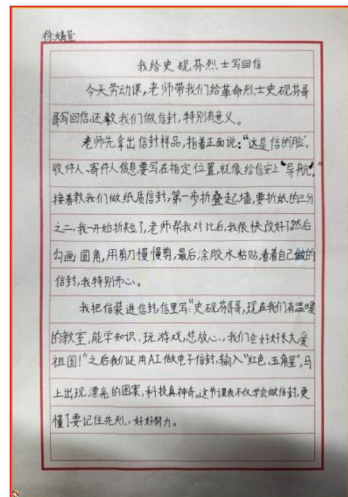 徐婧萱
我给史砚芬烈士写回信
今天劳动课，老师带我们给革命烈士史砚芬哥
哥写回信，还教我们做信封，特别有意义。
老师先拿出信封样品，指着正面说：“这是信的‘脸’，
收件人、寄件人信息要写在指定位置，就像给信安上‘导航’。”
接着教我们做纸质信封，第一步折叠起墙，要折纸的三分
之二，我一开始折短了，老师帮我对比后，我很快改好了。然后
勾画圆角，用剪刀慢慢剪，最后，涂胶水粘贴，看着自己做的
信封，我特别开心。
我把信装进信封，信里写：“史砚芬哥哥，现在我们有温暖
的教室，能学知识、玩游戏，您放心，我们会好好长大爱
祖国！”之后我们还用AI做电子信封，输入“红色、五角星”，马
上出现漂亮的图案，科技真神奇。这节课我不仅学会做信封，更
懂了要记住先烈，好好努力。